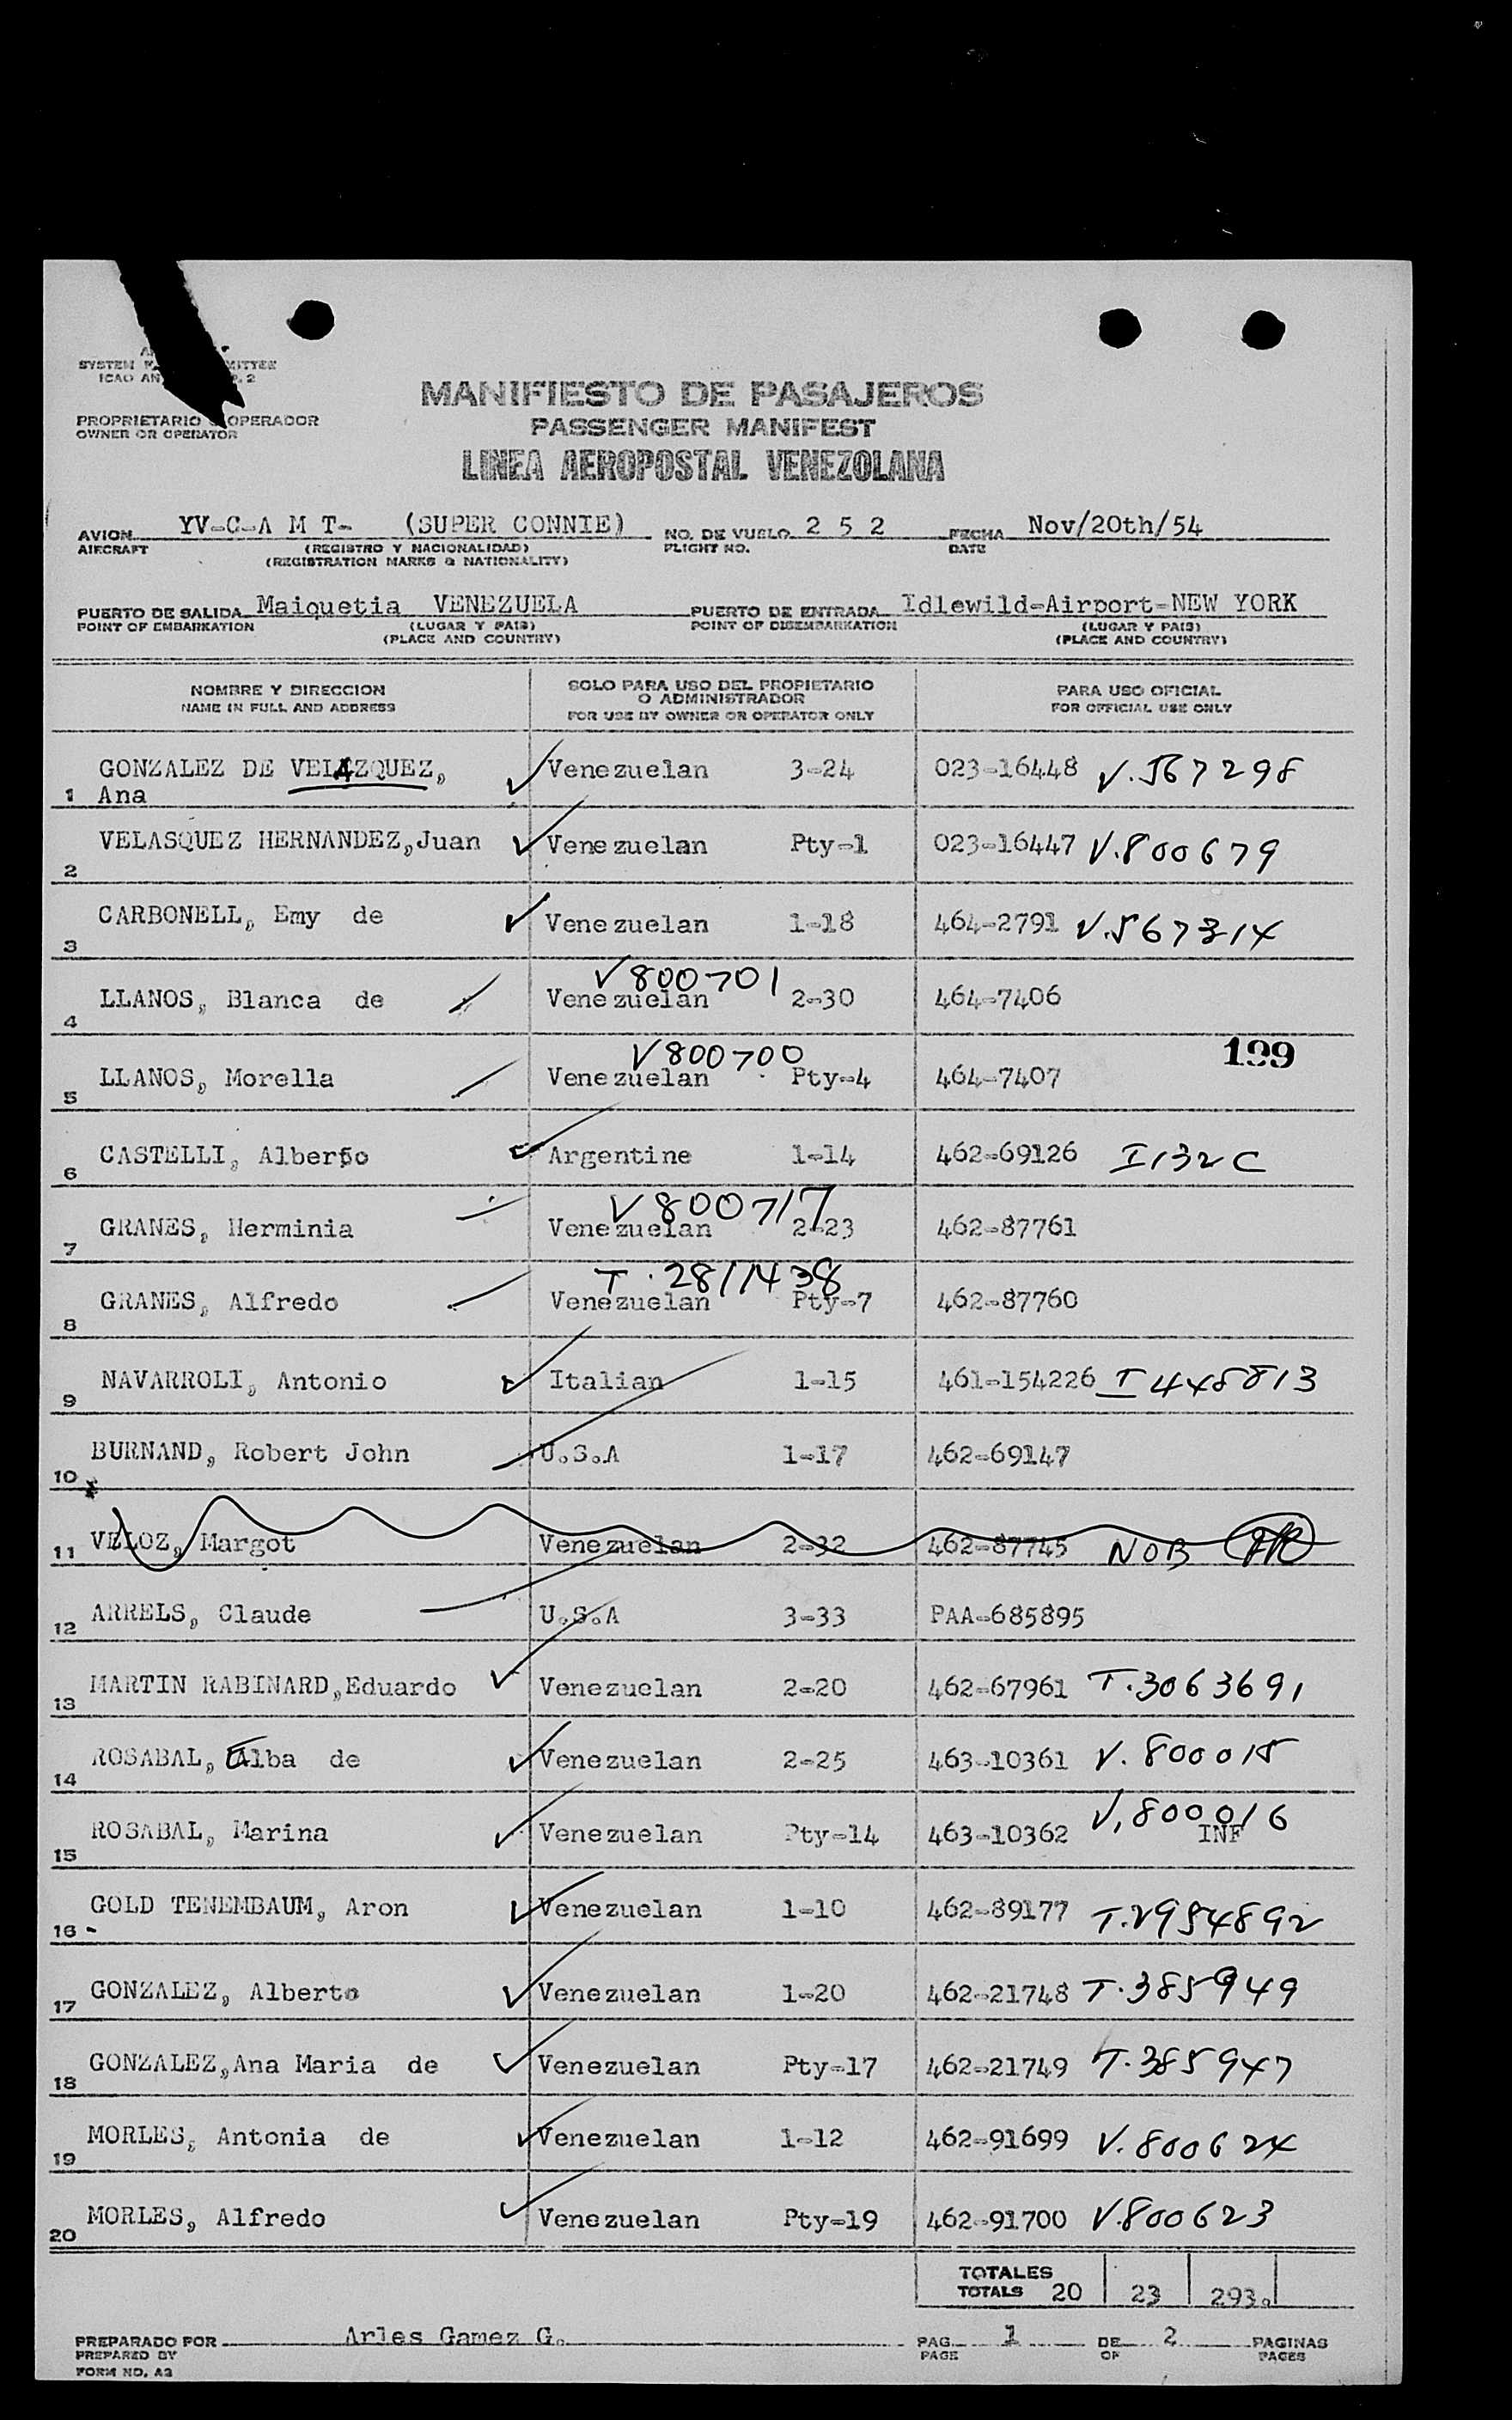 SYSTEM
ICAO AN
PROPRIETARIO OPERADOR
OWNER OR OPERATOR
MANIFIESTO DE PASAJEROS
PASSENGER MANIFEST
LINEA AEROPOSTAL VENEZOLANA
AVION YV-C-A M T- (SUPER CONNIE) NO. DE VUELO 2 5 2 FECHA Nov/20th/54
AIRCRAFT (REGISTRO Y NACIONALIDAD) FLIGHT NO. DATE
(REGISTRATION MARKS & NATIONALITY)
PUERTO DE SALIDA Maiquetia VENEZUELA PUERTO DE ENTRADA Idlewild-Airport-NEW YORK
POINT OF EMBARKATION (LUGAR Y PAIS) POINT OF DISEMBARKATION (LUGAR Y PAIS)
(PLACE AND COUNTRY) (PLACE AND COUNTRY)
NOMBRE Y DIRECCION SOLO PARA USO DEL PROPIETARIO O ADMINISTRADOR PARA USO OFICIAL
NAME IN FULL AND ADDRESS FOR USE BY OWNER OR OPERATOR ONLY FOR OFFICIAL USE ONLY
GONZALEZ DE VELAZQUEZ, Venezuelan 3-24 023-16448 V.567298
1 Ana
VELASQUEZ HERNANDEZ,Juan Venezuelan Pty-1 023-16447 V.800679
2
CARBONELL, Emy de Venezuelan 1-18 464-2791 V.567314
3
V800701
LLANOS, Blanca de Venezuelan 2-30 464-7406
4
V800700 199
LLANOS, Morella Venezuelan Pty-4 464-7407
5
CASTELLI, Alberto Argentine 1-14 462-69126 I132C
6
V800717
GRANES, Herminia Venezuelan 2-23 462-87761
7
T.2811438
GRANES, Alfredo Venezuelan Pty-7 462-87760
8
NAVARROLI, Antonio Italian 1-15 461-154226 I448813
9
BURNAND, Robert John U.S.A 1-17 462-69147
10
VELOZ, Margot Venezuelan 2-32 462-87745 NOB
11
ARRELS, Claude U.S.A 3-33 PAA-685895
12
MARTIN RABINARD,Eduardo Venezuelan 2-20 462-67961 T.3063691
13
ROSABAL, Alba de Venezuelan 2-25 463-10361 V.800015
14
V,800016
ROSABAL, Marina Venezuelan Pty-14 463-10362 INF
15
GOLD TENEMBAUM, Aron Venezuelan 1-10 462-89177 T.2954892
16 -
GONZALEZ, Alberto Venezuelan 1-20 462-21748 T.385949
17
GONZALEZ,Ana Maria de Venezuelan Pty-17 462-21749 T.385947
18
MORLES, Antonia de Venezuelan 1-12 462-91699 V.800624
19
MORLES, Alfredo Venezuelan Pty-19 462-91700 V.800623
20
TOTALES
TOTALS 20 23 293.
PREPARADO POR Arles Gamez G. PAG. 1 DE 2 PAGINAS
PREPARED BY PAGE OF PAGES
FORM NO. A3